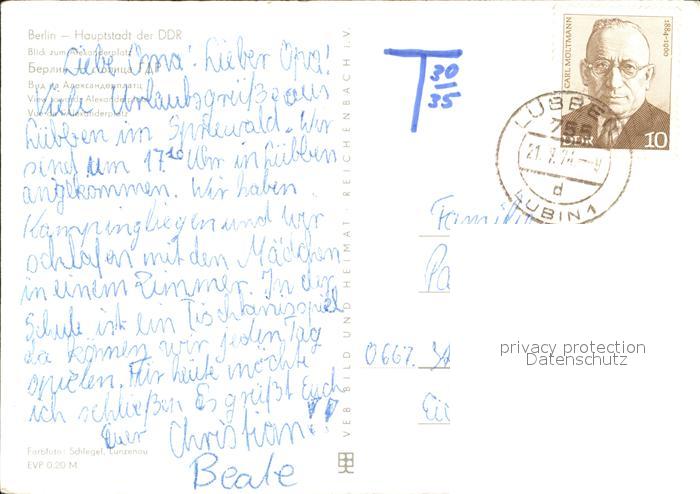 Berlin — Hauptstadt der DDR
Blick zum Alexanderplatz
Берлин — столица ГДР
Вид на Александерплатц
View Alexander
Vue Alexanderplatz
Liebe Oma! Lieber Opa!
Viele Urlaubsgrüße aus
Lübben im Spreewald. Wir
sind um 17 Uhr in Lübben
angekommen. Wir haben
Kampingliegen und wir
schlafen mit den Mädchen
in einem Zimmer. In der
Schule ist ein Tischtennisspiel
da können wir jeden Tag
spielen. Für heute möchte
ich schließen Es grüßt Euch
Euer Christian!
Beate
Farbfoto: Schlegel, Lunzenau
EVP 0,20 M
VEB BILD UND HEIMAT REICHENBACH i.V.
T 30
35
CARL MOLTMANN
1884-1960
DDR 10
LÜBBEN
755
d
LUBIN 1
Famili
0667.
privacy protection
Datenschutz